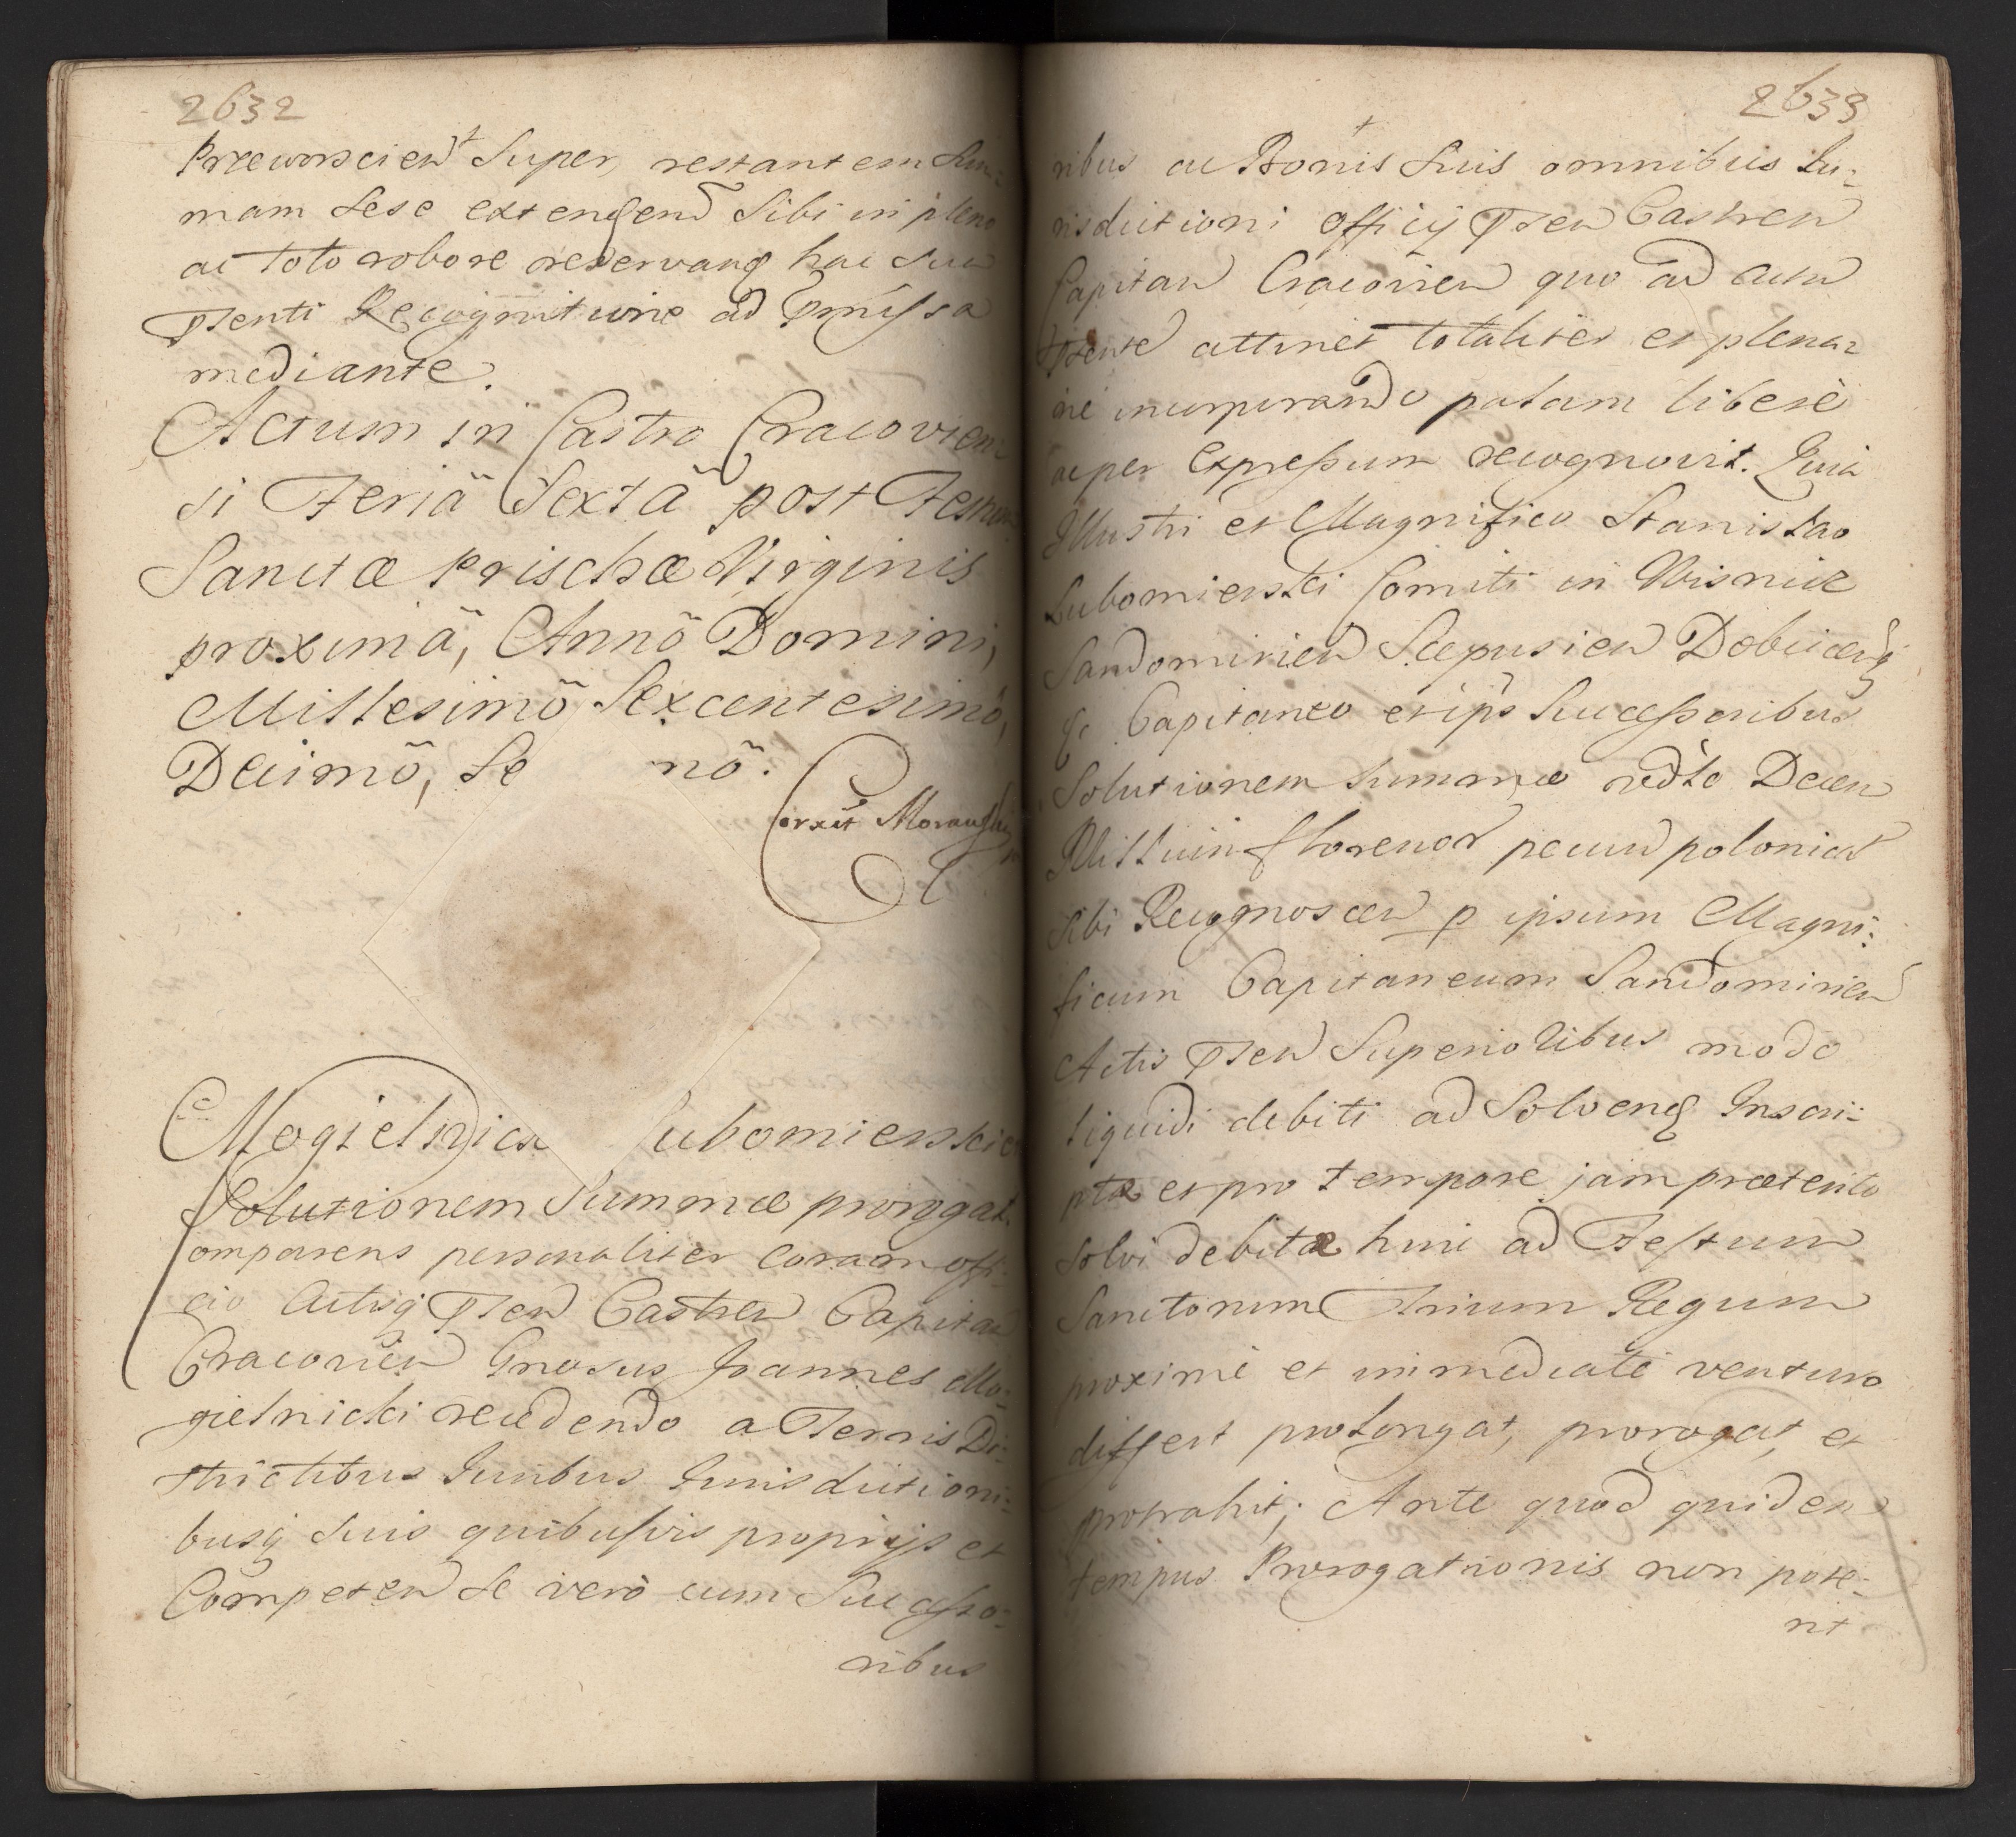 2632
Przeworscien Super, restantem Sum:
mam sese extendend sibi in pleno
ac toto robore reservang hac sua
Psenti Recognitione ad Pmissa
mediante.
Actum in Castro Cracovien:
si Feriā Sextā post Festum
Sanctæ Prischæ Virginis
proximā, Annō Domini,
Millesimō Sexcentesimō,
Decimō, Se nō.
Corxit Morawsky
Mogielnicki Lubomierskie
Solutionem Summæ prorogat.
Comparens personaliter coram offi:
cio Actisq Psen Castren Capitan
Cracovien Gnosus Joannes Mo:
gielnicki recedendo a Terris Di:
strictibus Juribus Jurisdictioni:
busq suis quibusvis proprijs et
Competen se vero cum Successo:
ribus
2633
ribus ac Bonis Suis omnibus Ju:
risdictioni officij Psen Castren
Capitan Cracovien quo ad actu
Psente attinet totaliter et plena:
rie incorporando palam libere
ac per expressum recognovit. Quia
Illustri et Magnifico Stanislao
Lubomierski Comiti in Wisnicz
Sandomirien Scepusien Dobicceng
&c Capitaneo et ips Successoribus
Solutionem summæ redto Decen
Millium florenor pecun polonical
sibi Recognoscen p ipsum Magni:
ficum Capitaneum Sandomirien
Actis Psen Superioribus modo
liquidi debiti ad Solveng Inscri:
ptæ et pro tempore jam præterito
solvi debitæ hinc ad Festum
Sanctorum Trium Regum
proxime et immediate venturo
differt prolongat, prorogat, et
protrahit; Ante quod quidem
tempus Prorogationis non pote:
rit